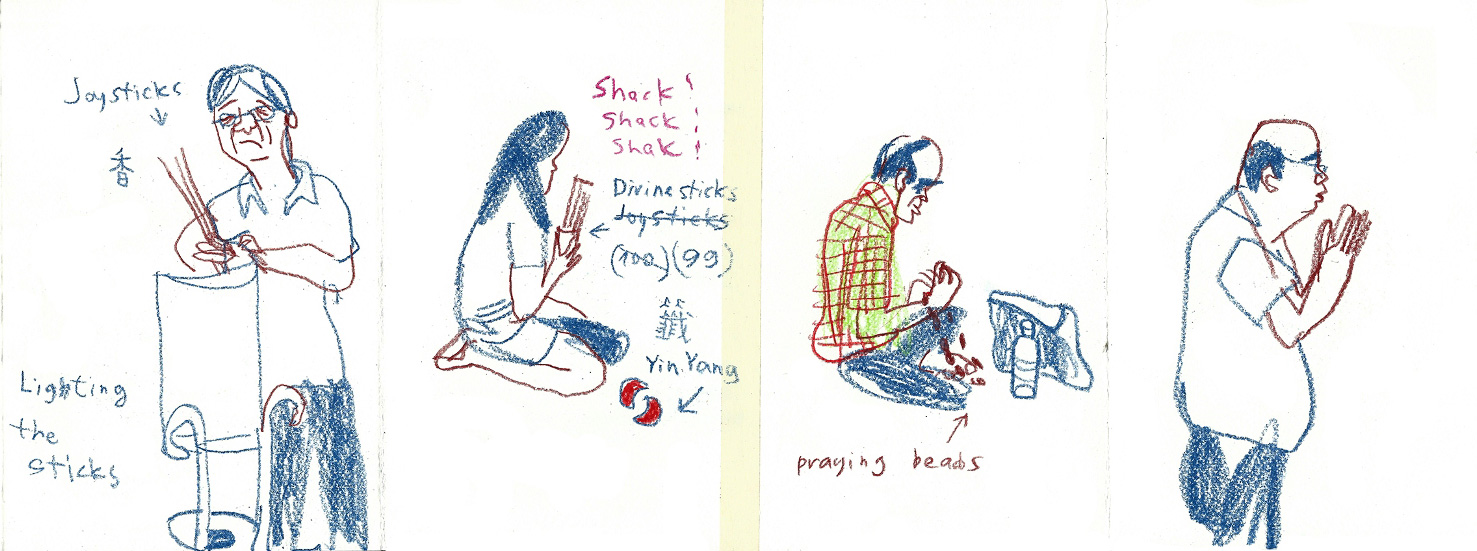 Joysticks
香
Lighting
the
sticks
Shack!
Shack!
Shak!
Divine sticks
Joysticks
(100) (99)
籤
Yin.Yang
praying beads